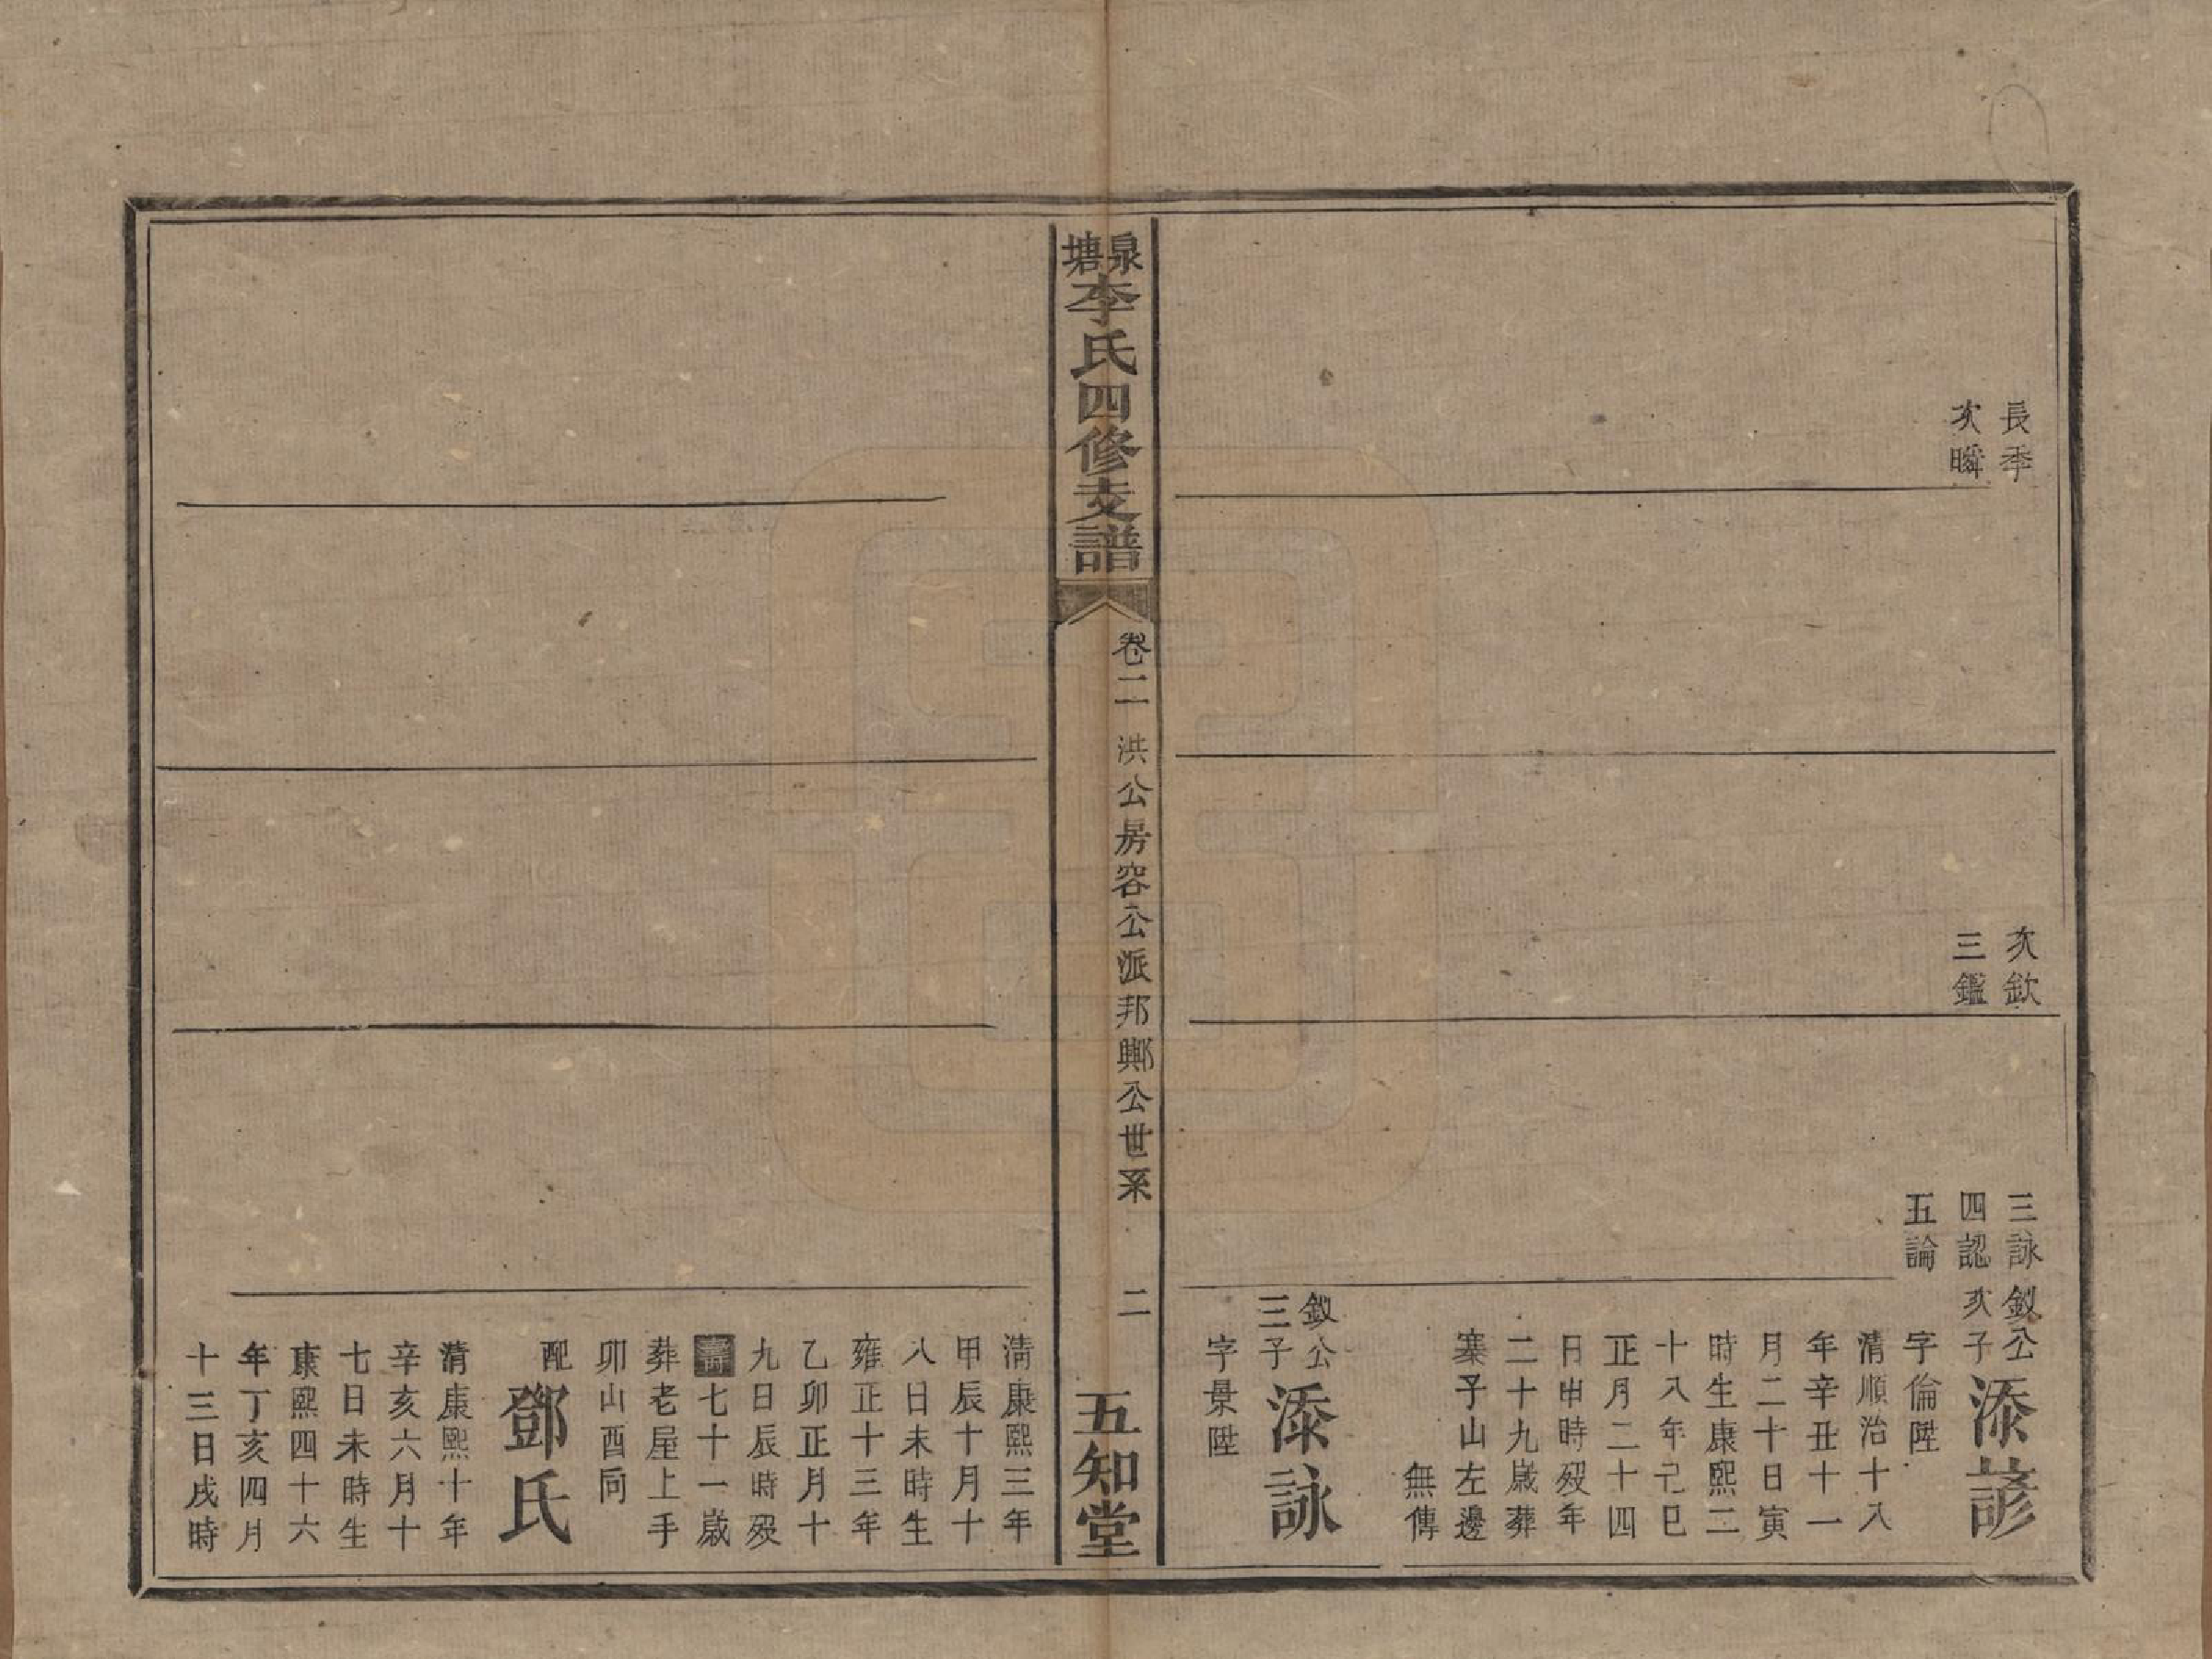 長季
次瞬
次欽
三鑑
三詠
四認
五論
釵公
次子
添諺
字倫陞
清順治十八
年辛丑十一
月二十日寅
時生康熙二
十八年己巳
正月二十四
日申時歿年
二十九歲葬
寨子山左邊
無傳
釵公
三子
添詠
字景陞
泉塘李氏四修支譜
卷二 洪公房容公派邦鄊公世系 二
五知堂
清康熙三年
甲辰十月十
八日未時生
雍正十三年
乙卯正月十
九日辰時歿
壽七十一歲
葬老屋上手
卯山酉同
配
鄧氏
清康熙十年
辛亥六月十
七日未時生
康熙四十六
年丁亥四月
十三日戌時